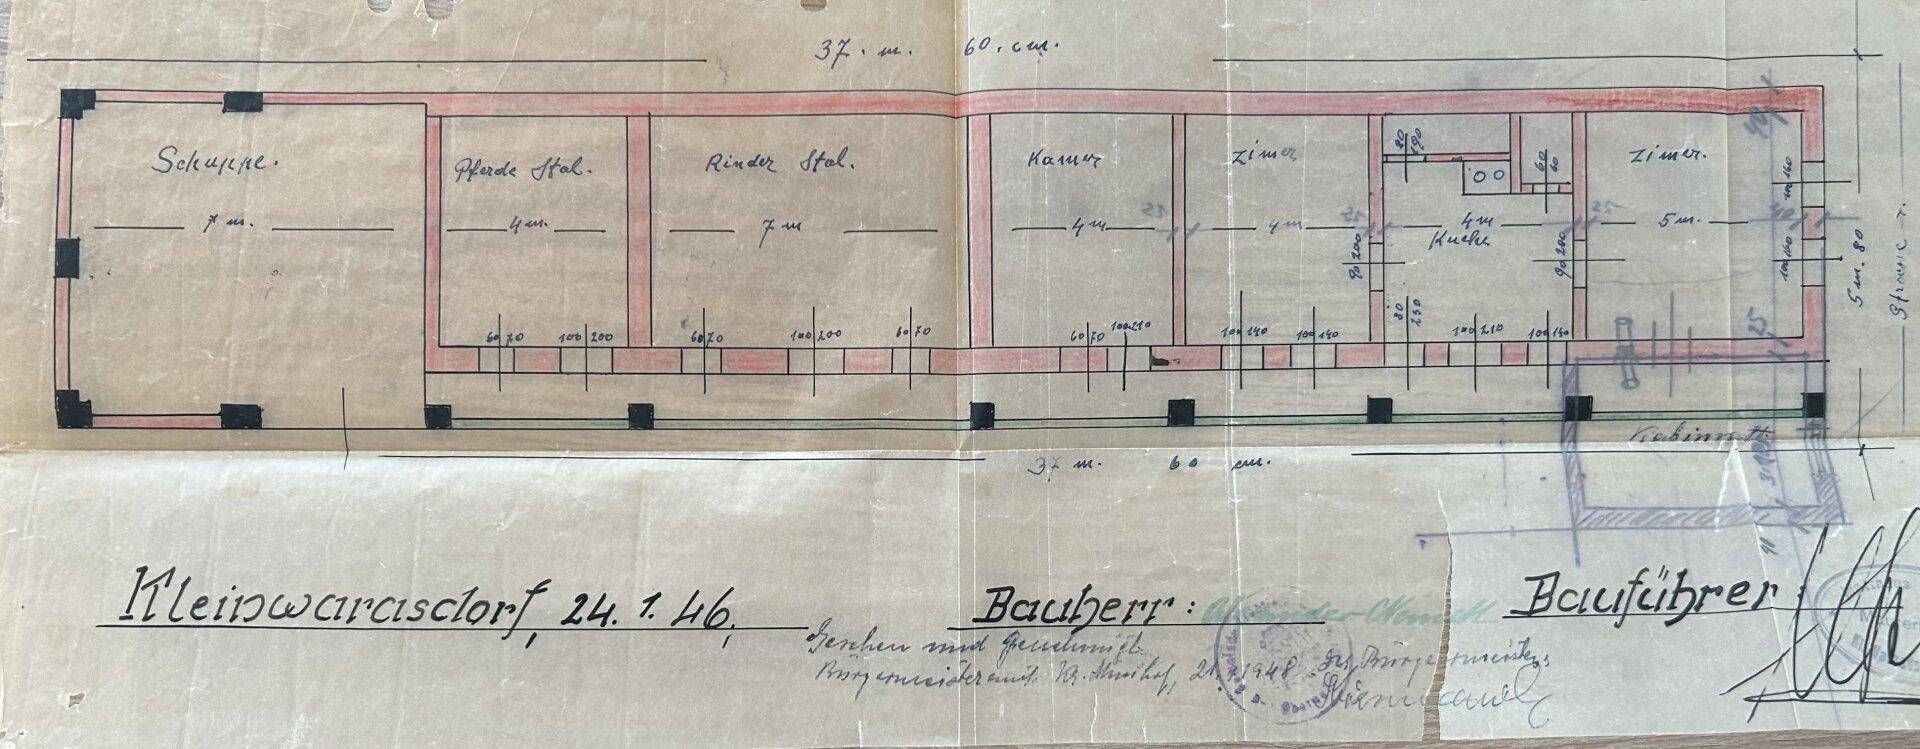 37. m. 60. cm.
Schuppe.
Pferde Stal.
Rinder Stal.
Kamer
Zimer
Zimer.
7 m.
4 m.
7 m
4 m
4 m
4 m
5 m.
Kuche
25
25
25
80 190
60 60
90 200
90 200
80 250
100 160
100 160
40
5 m. 80
60 70
100 200
60 70
100 200
60 70
60 70
100 210
100 140
100 140
100 210
100 140
25
Kabinett
37 m. 60 cm.
Kleinwarasdorf, 24. 1. 46.
Bauherr:
Bauführer:
Gesehen und Genehmigt
Bürgermeisteramt Kr. Minihof, 1948 Bürgermeister